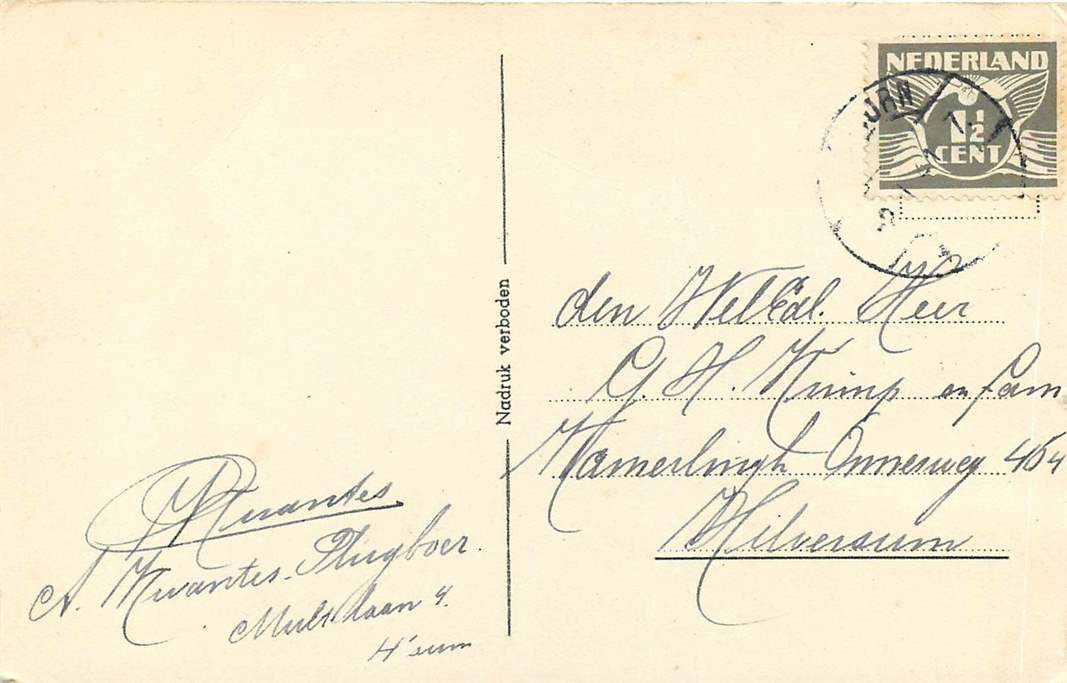 NEDERLAND
1½
CENT
Nadruk verboden
den WelEd. Heer
G. H. Krimp en fam
Kamerlingh Onnesweg
Hilversum
Kwantes
A. Kwantes-Pluyboer.
laan 4.
H'sum